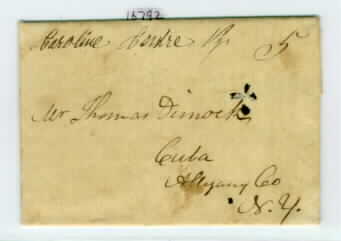 15792
Caroline Centre Ny. 5
Mr Thomas Dimock
Cuba
Allegany Co
N. Y.